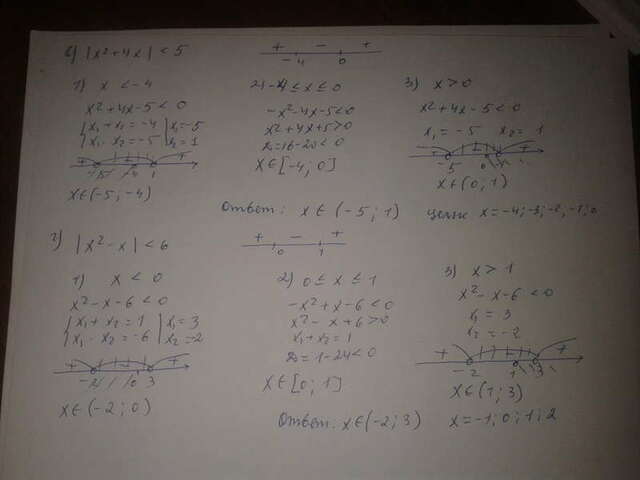 б) |x²+4x| < 5
+ − +
-4 0
1) x < -4
x²+4x-5<0
x₁+x₂=-4 | x₁=-5
x₁·x₂=-5 | x₂=1
+ +
-5 -4 1
x∈(-5;-4)
2) -4≤x≤0
-x²-4x-5<0
x²+4x+5>0
D=16-20<0
x∈[-4;0]
3) x>0
x²+4x-5<0
x₁=-5 x₂=1
+ +
-5 0 1
x∈(0;1)
Ответ: x∈(-5;1) целые x=-4;-3;-2,-1;0
г) |x²-x|<6
+ − +
0 1
1) x<0
x²-x-6<0
x₁+x₂=1 | x₁=3
x₁·x₂=-6 | x₂=-2
+ − +
-2 0 3
x∈(-2;0)
2) 0≤x≤1
-x²+x-6<0
x²-x+6>0
x₁+x₂=1
D=1-24<0
x∈[0;1]
3) x>1
x²-x-6<0
x₁=3
x₂=-2
+ − +
-2 1 3
x∈(1;3)
Ответ. x∈(-2;3) x=-1;0;1;2